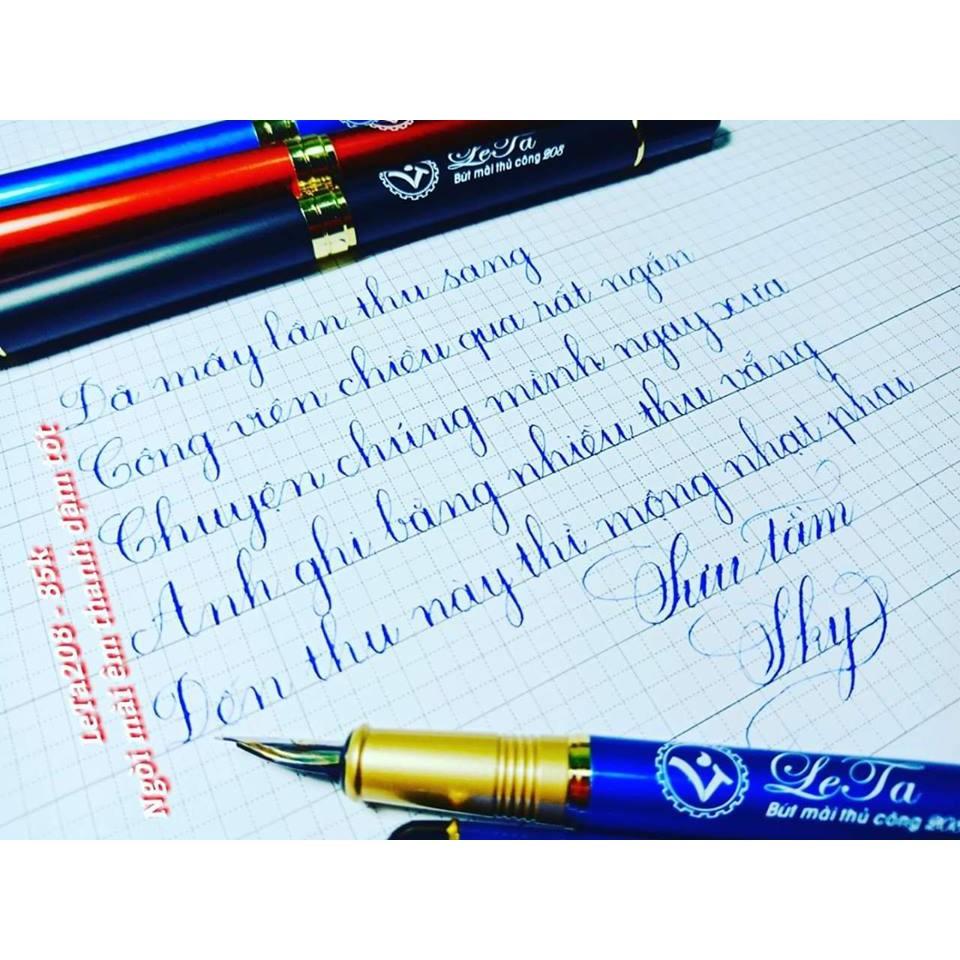 LeTa
Bút mài thủ công 208
Dã mấy lần thu sang
Công viên chiều qua rất ngắn
Chuyện chúng mình ngày xưa
Anh ghi bằng nhiều thu vắng
Đến thu này thì mộng nhạt phai
Sưu tầm
Sky
LeTa208 - 85k
Ngòi mài êm thanh đậm tốt
LeTa
Bút mài thủ công 208